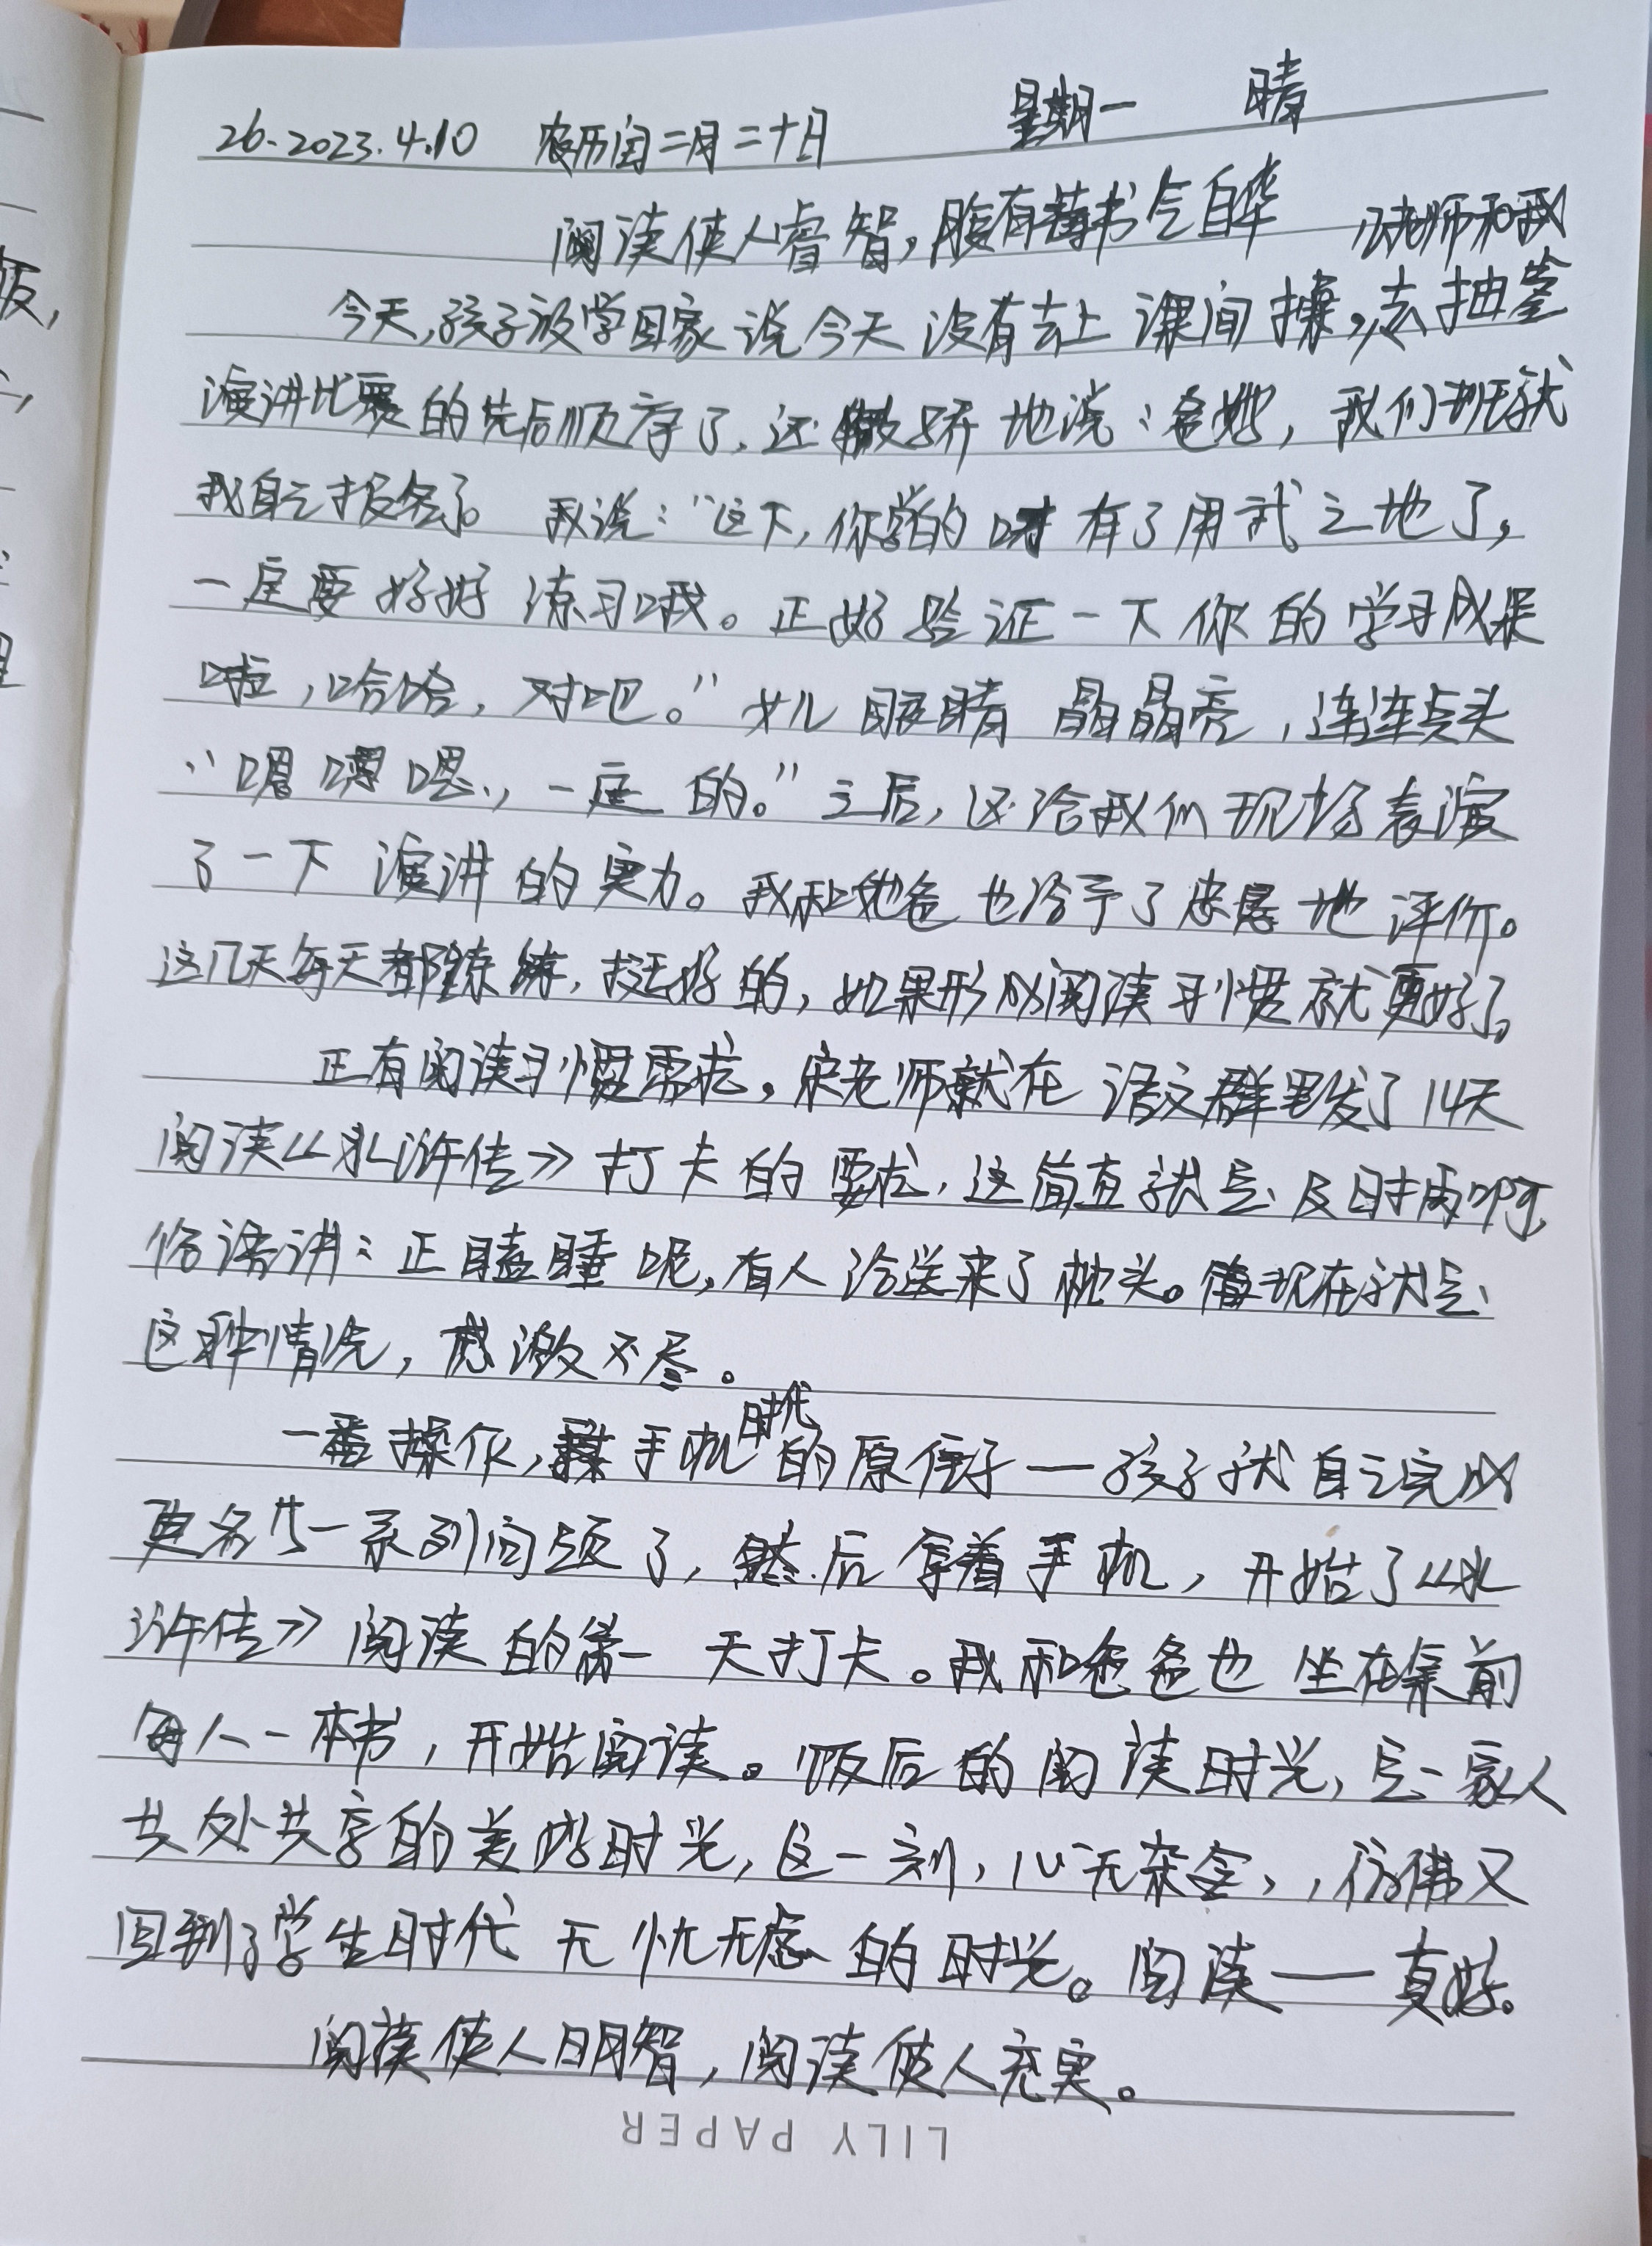 26.2023.4.10 农历闰二月二十日 星期一 晴
阅读使人睿智，腹有诗书气自华
老师和我
今天，孩子放学回家说今天没有去上课间操，去抽签
演讲比赛的先后顺序了，还撒娇地说：爸妈，我们班就
我自己报名了。我说：“这下，你学的 有了用武之地了，
一定要好好练习哦。正好验证一下你的学习成果
啦，哈哈，对吧。”女儿眼睛晶晶亮，连连点头
“嗯嗯嗯，一定的。”之后，还给我们现场表演
了一下演讲的实力。我和她爸也给予了中恳地评价。
这几天每天都练练，挺好的，如果形成阅读习惯就更好了。
正有阅读习惯需求，宋老师就在语文群里发了14天
阅读《水浒传》打卡的要求，这简直就是及时雨啊，
俗语讲：正瞌睡呢，有人给送来了枕头。现在就是
这种情况，感激不尽。
一番操作，手机时代的原住子——孩子就自己完成
更名等一系列问题了，然后拿着手机，开始了《水
浒传》阅读的第一天打卡。我和爸爸也坐在桌前
每人一本书，开始阅读。饭后的阅读时光，是一家人
共处共享的美好时光，这一刻，心无杂念，仿佛又
回到了学生时代无忧无虑的时光。阅读——真好。
阅读使人明智，阅读使人充实。
LILY PAPER